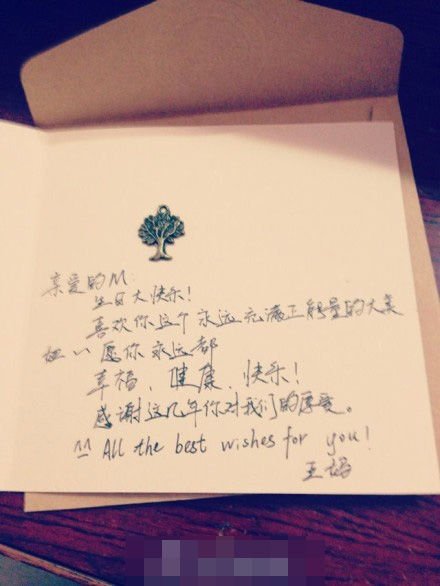 亲爱的M:
生日大快乐!
喜欢你这个永远充满正能量的大美
妞~愿你永远都
幸福、健康、快乐!
感谢这几年你对我们的厚爱。
^^ All the best wishes for you!
王